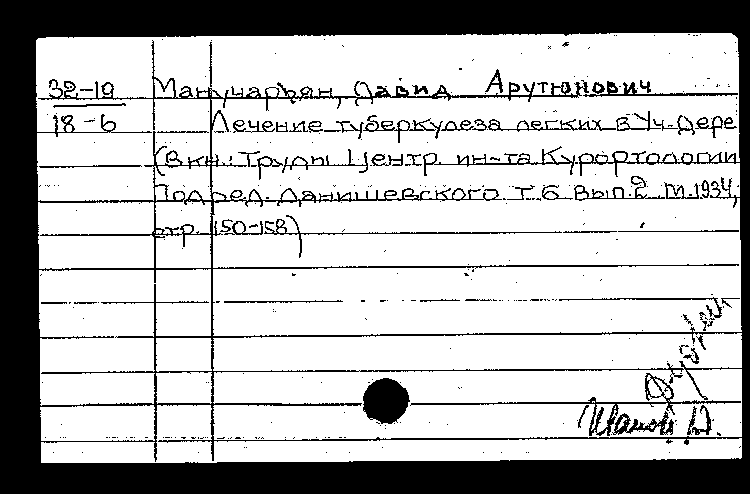 32-19 Манучарьян, Давид Арутюнович
18-6 Лечение туберкулеза легких в Уч-Дере
(в кн.: Труды Центр. ин-та Курортологии
Под ред. Данишевского т. 6 вып. 2 М. 1934,
стр. 150-158)
Иванов